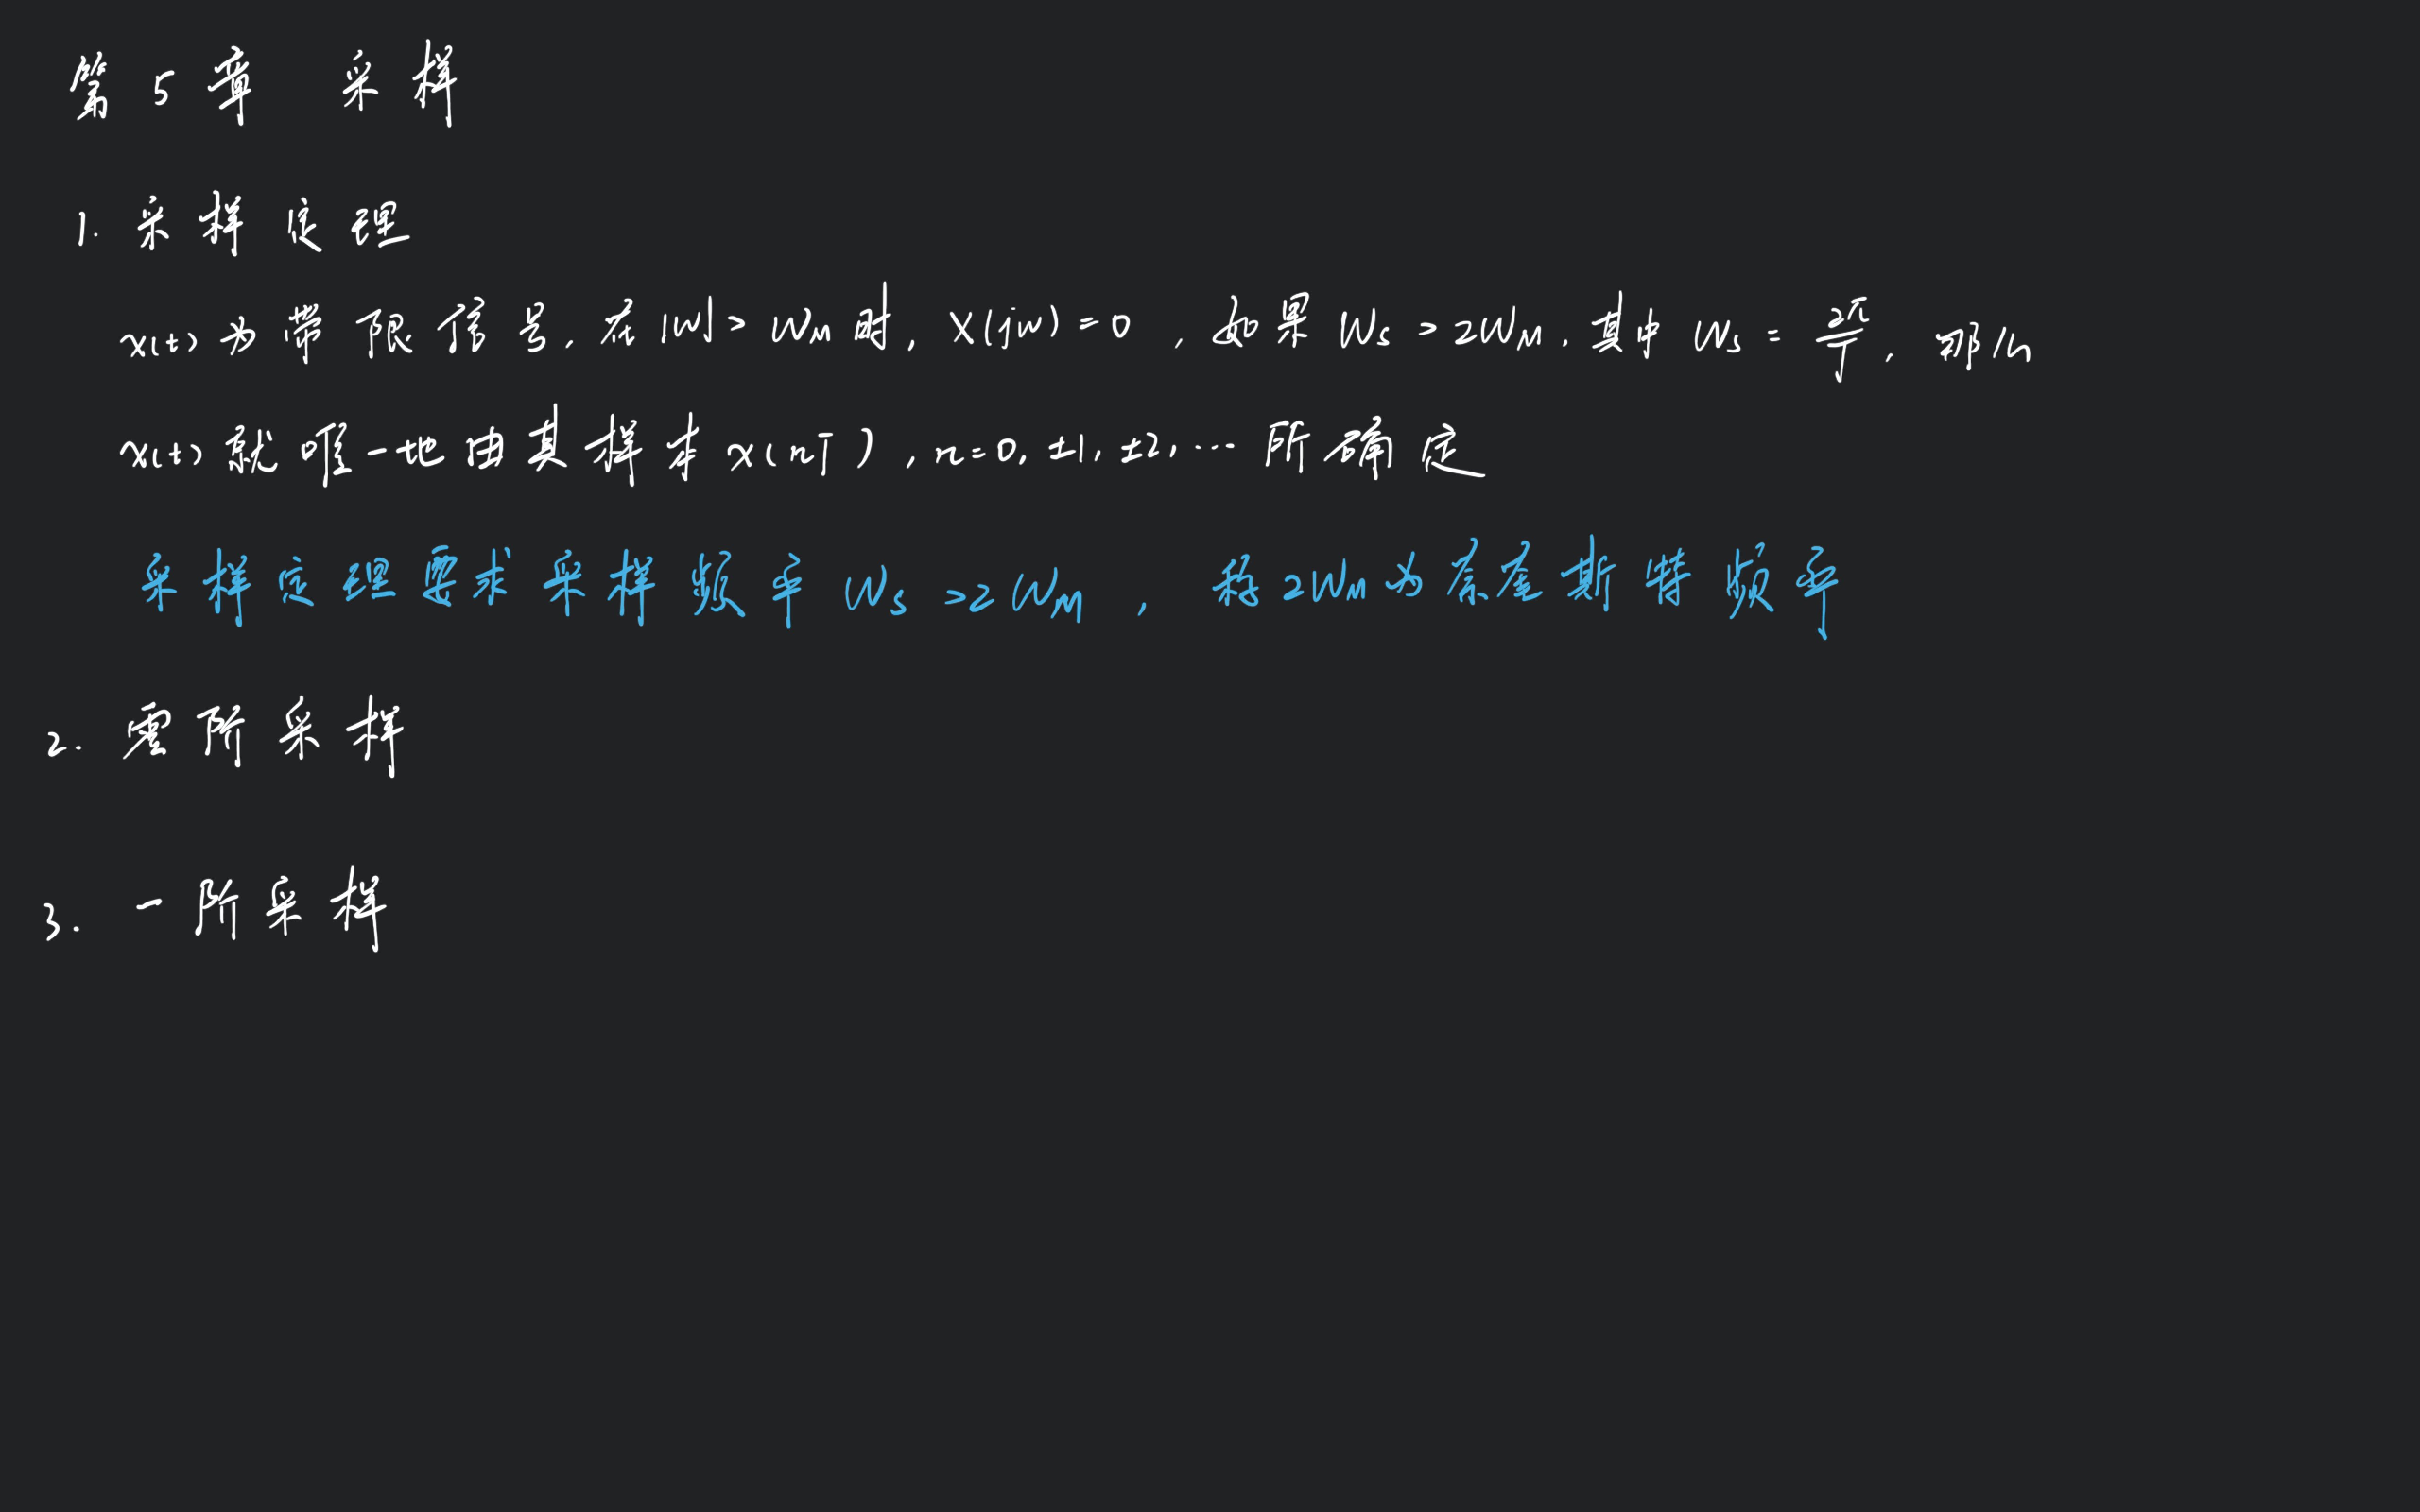 第5章 采样
1. 采样定理
x(t)为带限信号,在|w|>Wm时,X(jw)=0,如果Ws>2Wm,其中Ws=2π/T,那么
x(t)就唯一地由其样本x(nT),n=0,±1,±2,…所确定
采样定理要求采样频率Ws>2Wm,称2Wm为奈奎斯特频率
2. 零阶采样
3. 一阶采样